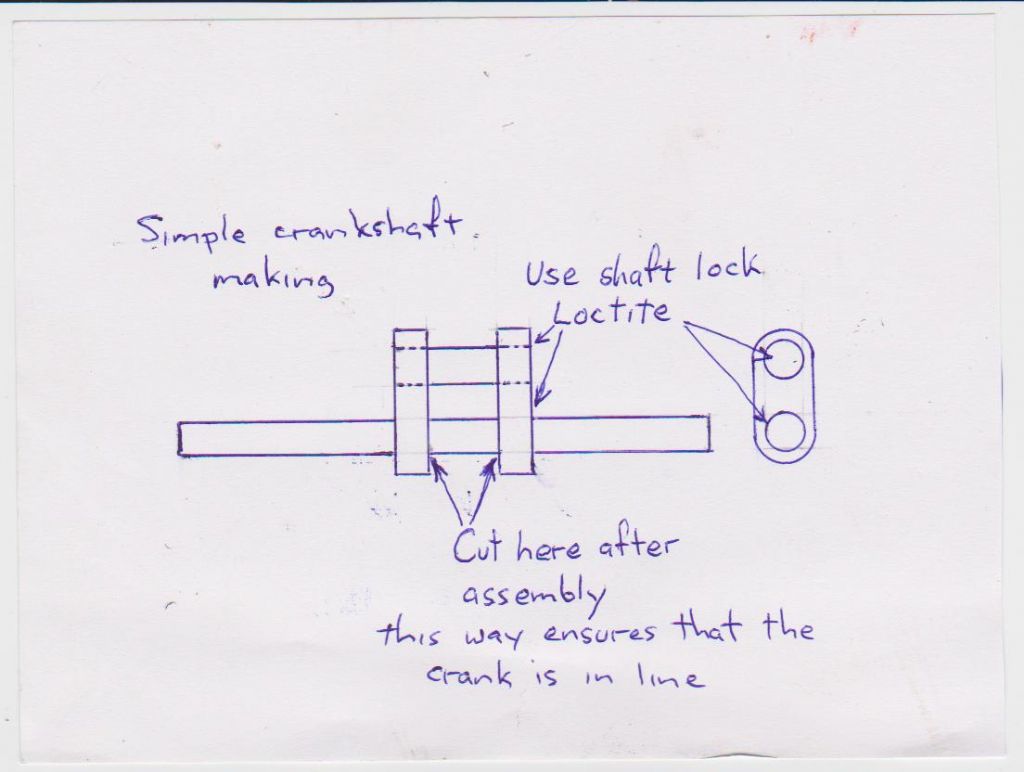 Simple crankshaft.
making
Use shaft lock
Loctite
Cut here after
assembly
this way ensures that the
crank is in line